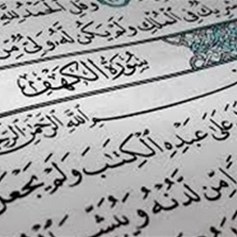 وَقُلِ الْحَمْدُ لِلَّهِ
فِي الْمُلْكِ وَلَمْ يَكُن لَّهُ وَلِيٌّ مِّنَ
سُورَةُ الْكَهْفِ
اللَّهِ الرَّحْمَٰنِ
عَلَىٰ عَبْدِهِ الْكِتَابَ وَلَمْ يَجْعَل
مِّن لَّدُنْهُ